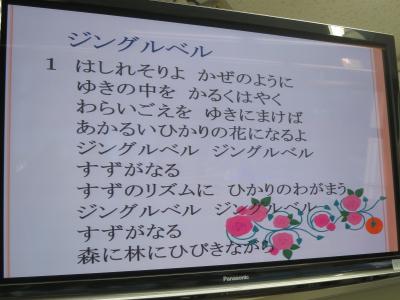 ジングルベル
1 はしれそりよ かぜのように
ゆきの中を かるくはやく
わらいごえを ゆきにまけば
あかるいひかりの花になるよ
ジングルベル ジングルベル
すずがなる
すずのリズムに ひかりのわがまう
ジングルベル ジングルベル
すずがなる
森に林にひびきながら
Panasonic